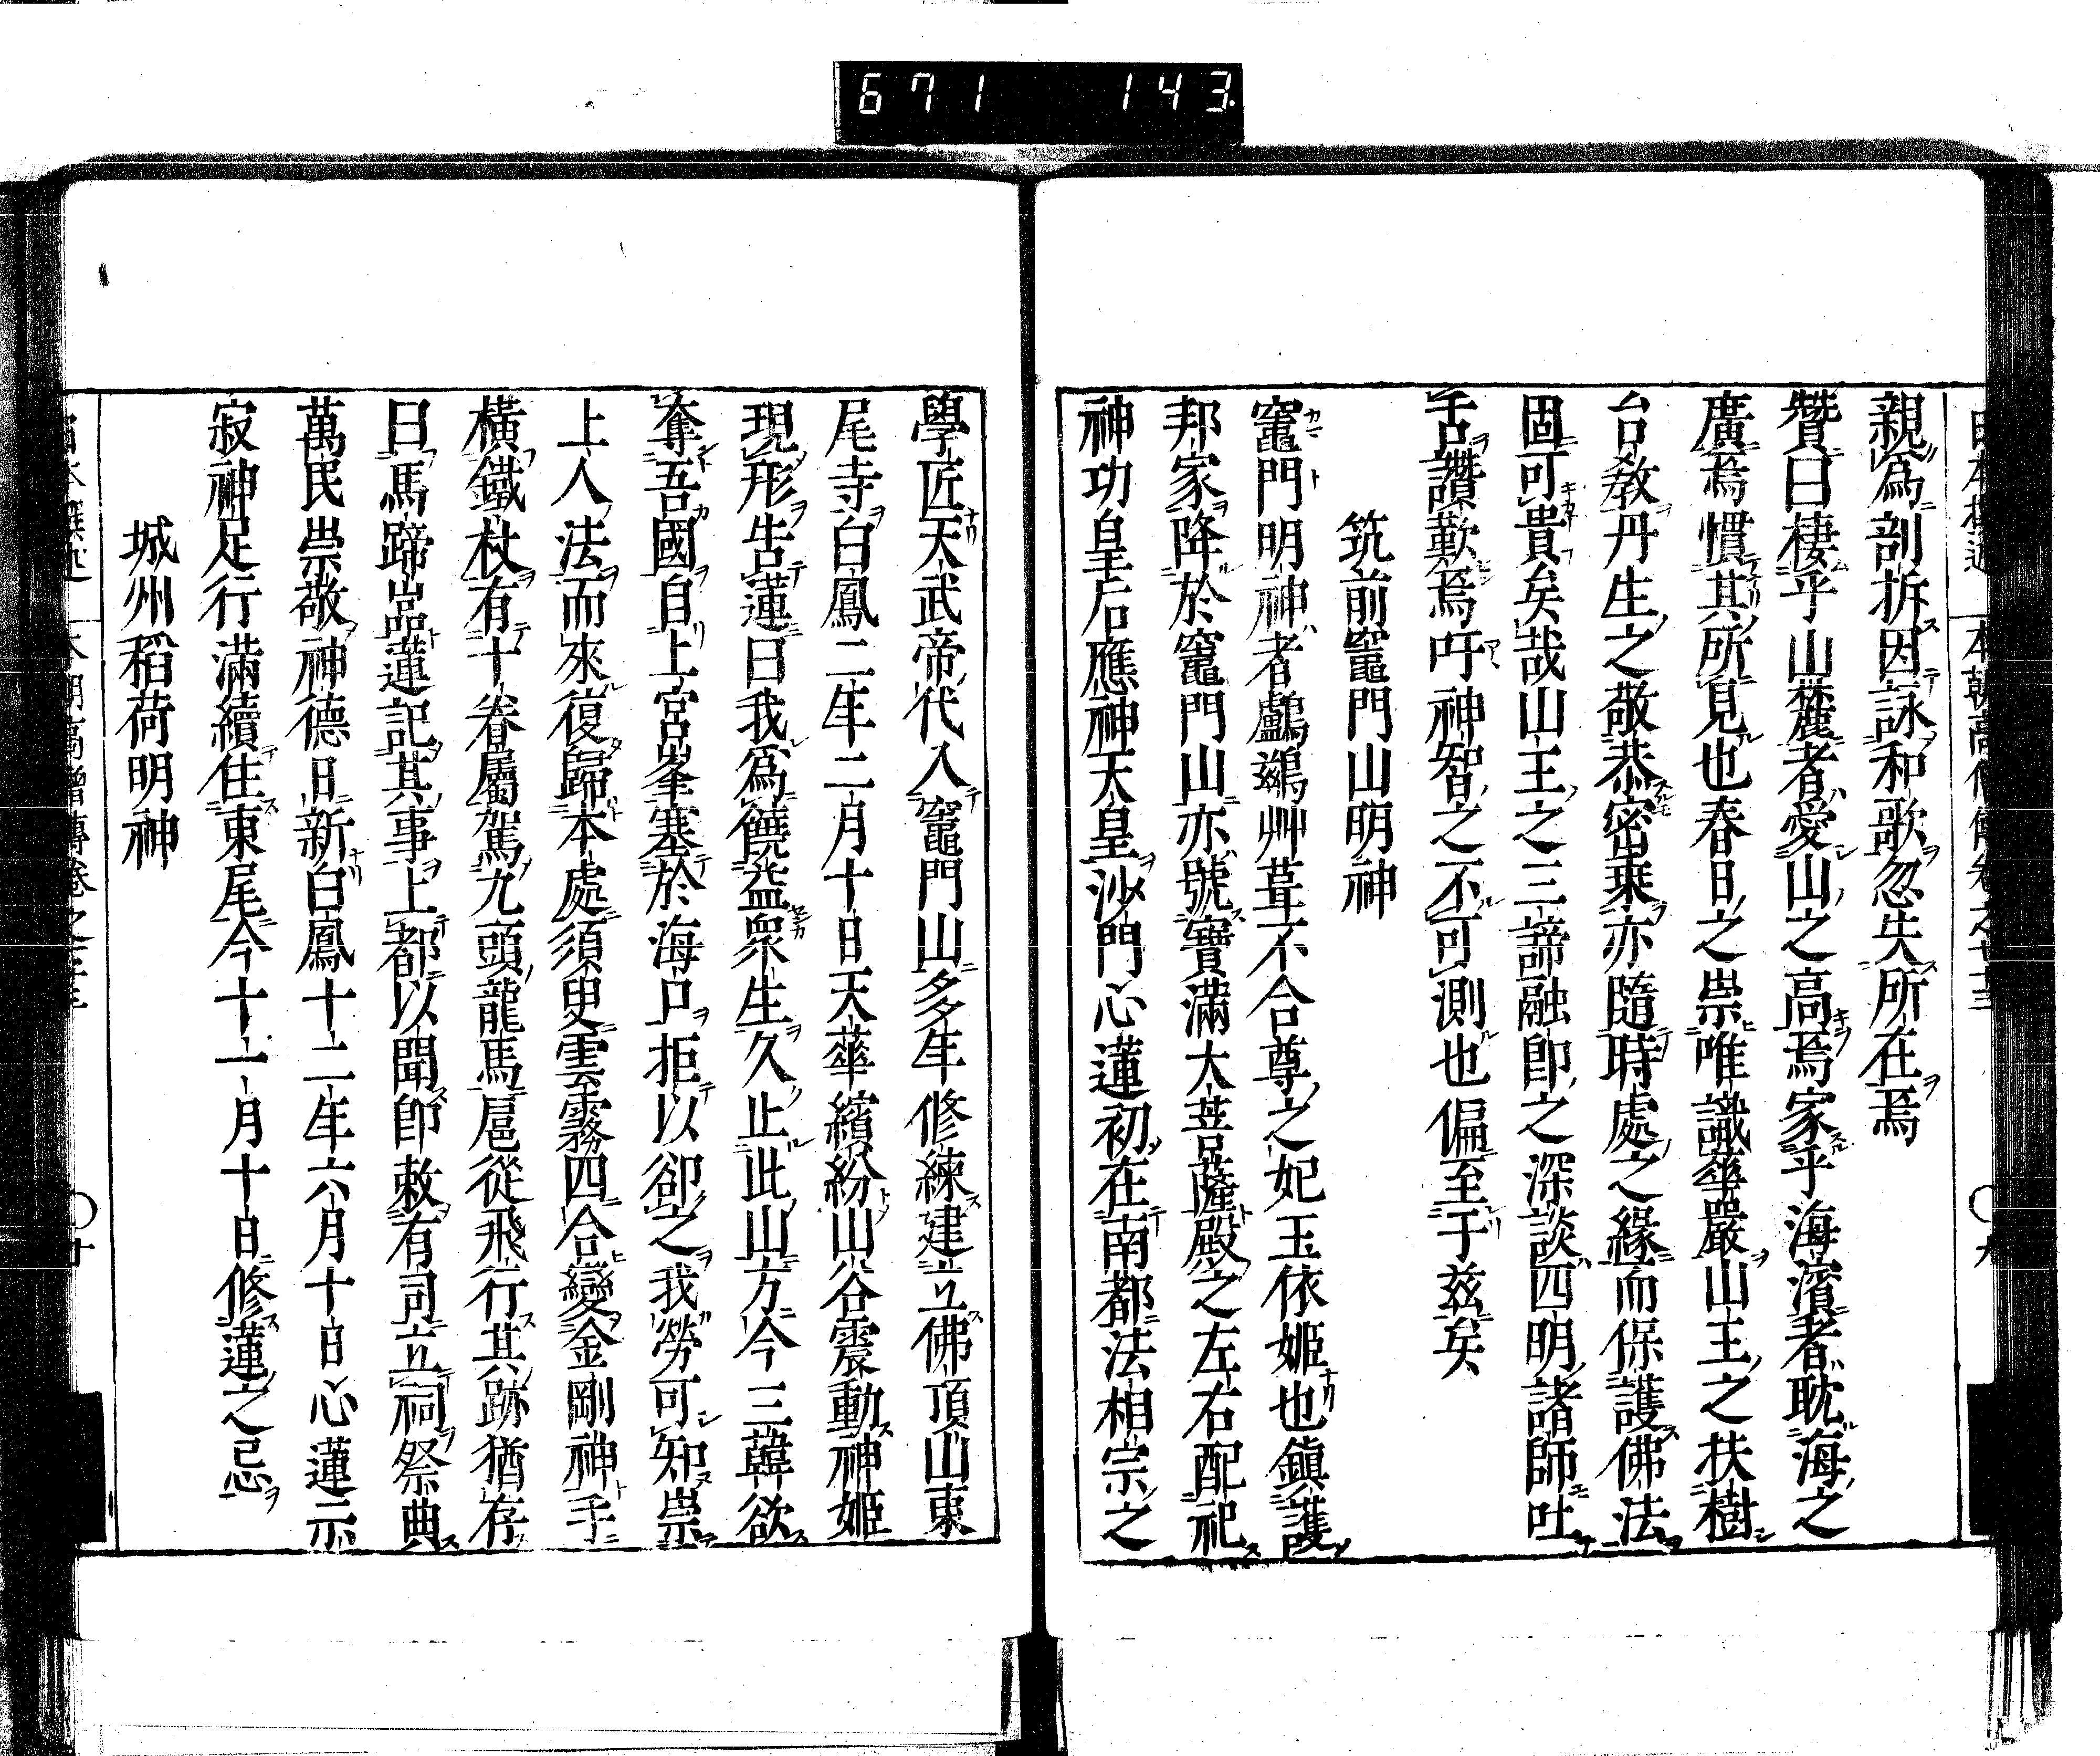 671 143
親爲剖拆因詠和歌忽失所在焉
贊曰棲乎山麓者愛山之高焉家乎海濱者耽海之
廣焉慣其所見也春日之崇唯識華嚴山王之扶樹
台敎丹生之敬恭密乘亦隨時處之緣而保護佛法
固可貴矣哉山王之三諦融卽之深談四明諸師吐
舌讚歎焉吁神智之不可測也偏至于兹矣
筑前竈門山明神
竈門明神者鸕鷀艸葺不合尊之妃玉依姬也鎭護
邦家降於竈門山亦號寶滿大菩薩殿之左右配祀
神功皇后應神天皇沙門心蓮初在南都法相宗之
學匠天武帝代入竈門山多年修練建立佛頂山東
尾寺白鳳二年二月十日天華繽紛山谷震動神姬
現形告蓮曰我爲饒益衆生久止此山方今三韓欲
奪吾國自上宮峯塞於海口拒以卻之我勞可知崇
上人法而來復歸本處須臾雲霧四合變金剛神手
橫鐵杖有十眷屬駕九頭龍馬扈從飛行其跡猶存
曰馬蹄嵓蓮記其事上都以聞卽敕有司立祠祭典
萬民崇敬神德日新白鳳十二年六月十日心蓮示
寂神足行滿續住東尾今十一月十日修蓮之忌
城州稻荷明神